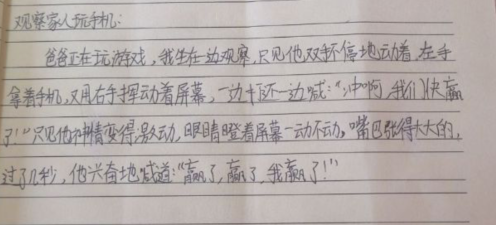 观察家人玩手机:
爸爸正在玩游戏，我坐在一边观察，只见他双手不停地动着，左手
拿着手机，又用右手挥动着屏幕，一边还一边喊："冲啊，我们快赢
了！"只见他神情变得激动，眼睛瞪着屏幕一动不动，嘴巴张得大大的，
过了几秒，他兴奋地喊道："赢了，赢了，我赢了！"